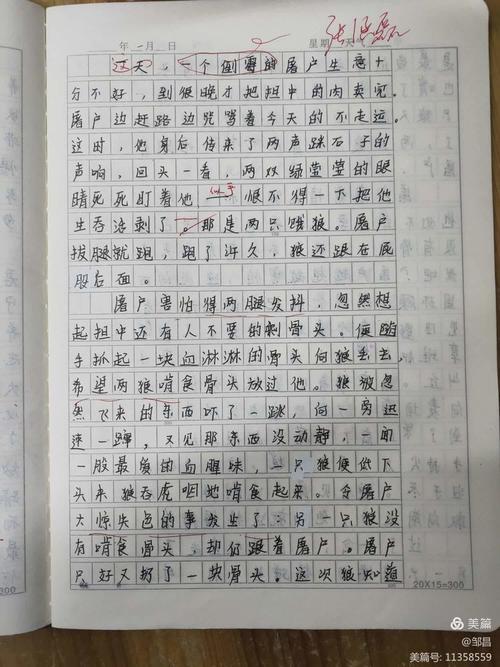 年 一月 日 星期 天
这天，一个倒霉的屠户生意十
分不好，到很晚才把担中的肉卖完。
屠户边赶路边咒骂着今天的不走运。
这时，他身后传来了两声踩石子的
声响，回头一看，两双绿莹莹的眼
睛死死盯着他，似乎恨不得一下把他
生吞活剥了。那是两只饿狼。屠户
拔腿就跑，跑了许久，狼还跟在屁
股后面。
屠户害怕得两腿发抖，忽然想
起担中还有人不要的剩骨头。便随
手抓起一块血淋淋的骨头向狼丢去，
希望两狼啃食骨头放过他。狼被忽
然飞来的东西吓了一跳，向一旁迅
速一蹿，又见那东西没动静，一面
一股最爱的血腥味，一只狼便低下
头来狼吞虎咽地啃食起来。令屠户
大惊失色的事发生了：另一只狼没
有啃食骨头，却仍跟着屠户。屠户
只好又扔了一块骨头。这次狼知道
20X15=300
美篇
@邹昌
美篇号: 11358559